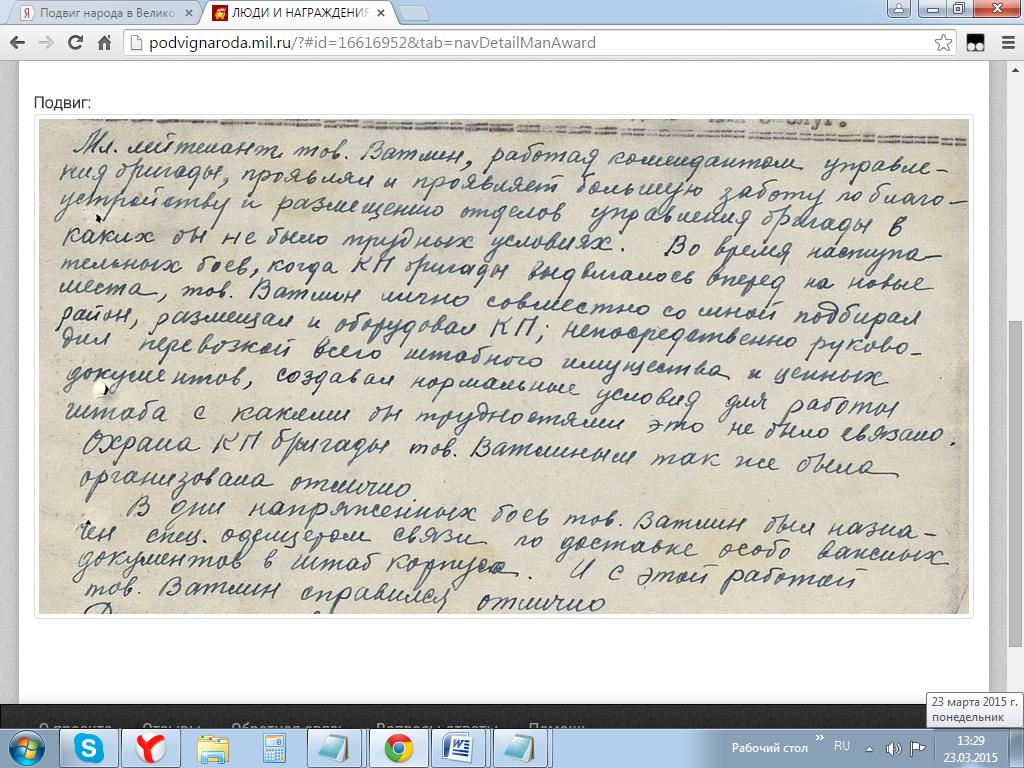 Подвиг народа в Велико
ЛЮДИ И НАГРАЖДЕНИЯ
podvignaroda.mil.ru/?#id=16616952&tab=navDetailManAward
Подвиг:
Мл. лейтенант тов. Ватлин, работая комендантом управле-
ния бригады, проявлял и проявляет большую заботу по благо-
устройству и размещению отделов управления бригады в
каких бы не было трудных условиях. Во время наступа-
тельных боев, когда КП бригады выдвигалось вперед на новые
места, тов. Ватлин лично совместно со мной подбирал
район, размещал и оборудовал КП; непосредственно руково-
дил перевозкой всего штабного имущества и ценных
документов, создавал нормальные условия для работы
штаба с какими бы трудностями это не было связано.
Охрана КП бригады тов. Ватлиным так же была
организована отлично.
В дни напряженных боев тов. Ватлин был назна-
чен спец. офицером связи по доставке особо важных
документов в штаб корпуса. И с этой работай
тов. Ватлин справился отлично
О проекте Отзывы Обратная связь Вопросы ответы Помощь
23 марта 2015 г.
понедельник
Рабочий стол
RU
13:29
23.03.2015